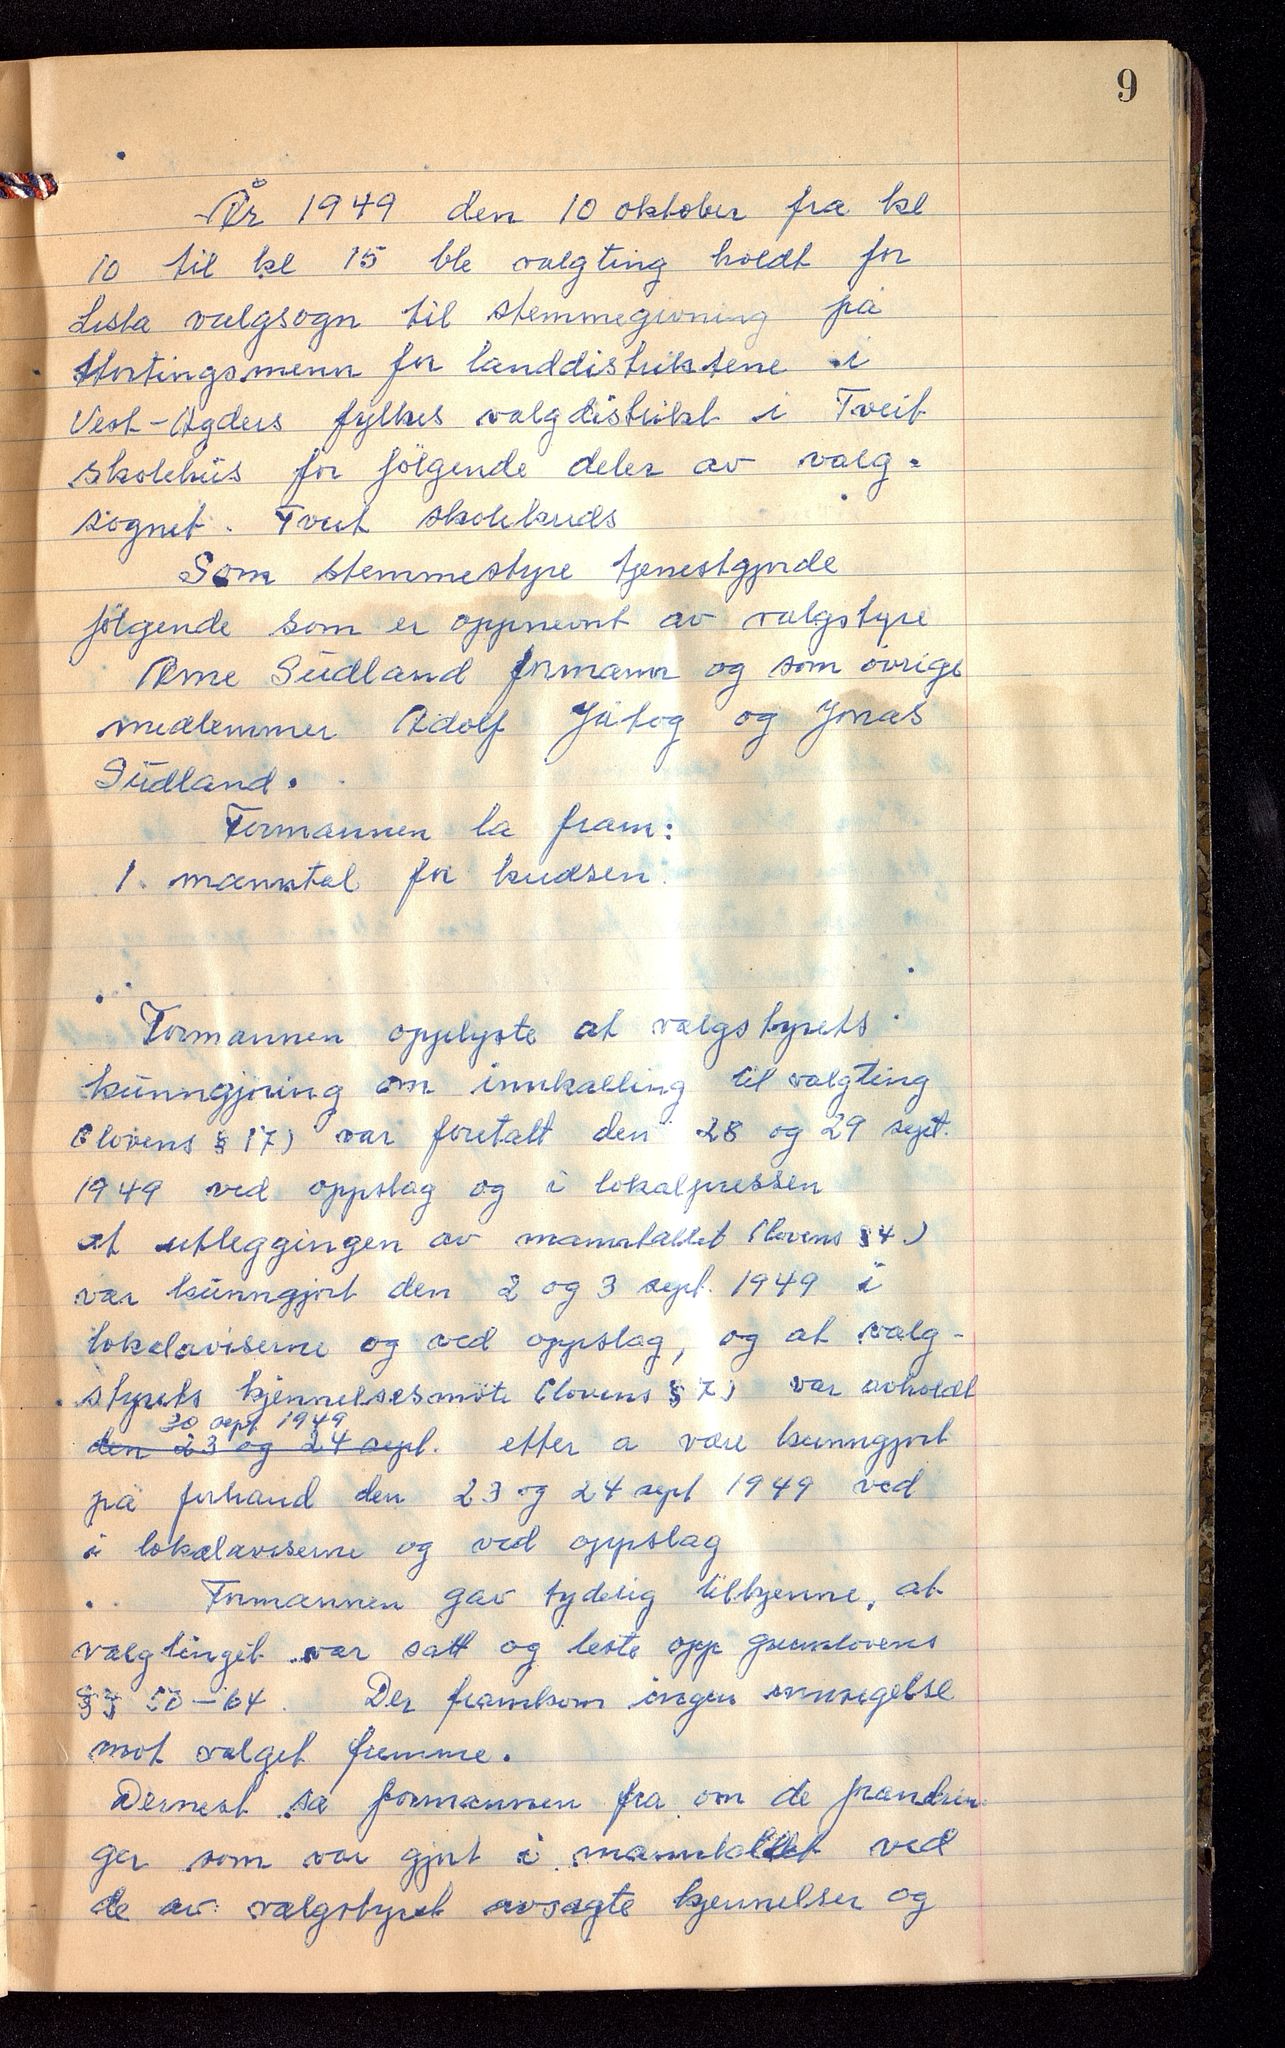 9
År 1949 den 10 oktober fra kl
10 til kl 15 ble valgting holdt for
Lista valgsogn til stemmegivning på
Stortingsmenn for landdistriktene i
Vest-Agders fylkes valgdistrikt i Tveit
skolehus for følgende deler av valg-
sognet. Tveit skolekreds
Som stemmestyre tjenestgjorde
følgende som er oppnevnt av valgstyre
Arne Sudland formann og som övrige
medlemmer Adolf Jåtog og Jonas
Sudland.
Formannen la fram:
1. manntal for kredsen.
Formannen opplyste at valgstyrets
kunngjöring om innkalling til valgting
(lovens § 17) var foretatt den 28 og 29 sept.
1949 ved oppslag og i lokalpressen
at utleggingen av manntallet (lovens § 4)
var kunngjort den 2 og 3 sept. 1949 i
lokalaviserne og ved oppslag, og at valg-
styrets kjennelsesmöte (lovens § 7) var avholdt
30 sept 1949
den 23 og 24 sept. etter a være kunngjort
på forhand den 23 og 24 sept 1949 ved
i lokalaviserne og ved oppslag
Formannen gav tydelig tilkjenne, at
valgtinget var satt og leste opp grunnlovens
§§ 50-64. Der framkom ingen innvegelse
mot valget fremme.
Dernest sa formannen fra om de frandrin
ger som var gjort i manntallet ved
de av valgstyret avsagte kjennelser og